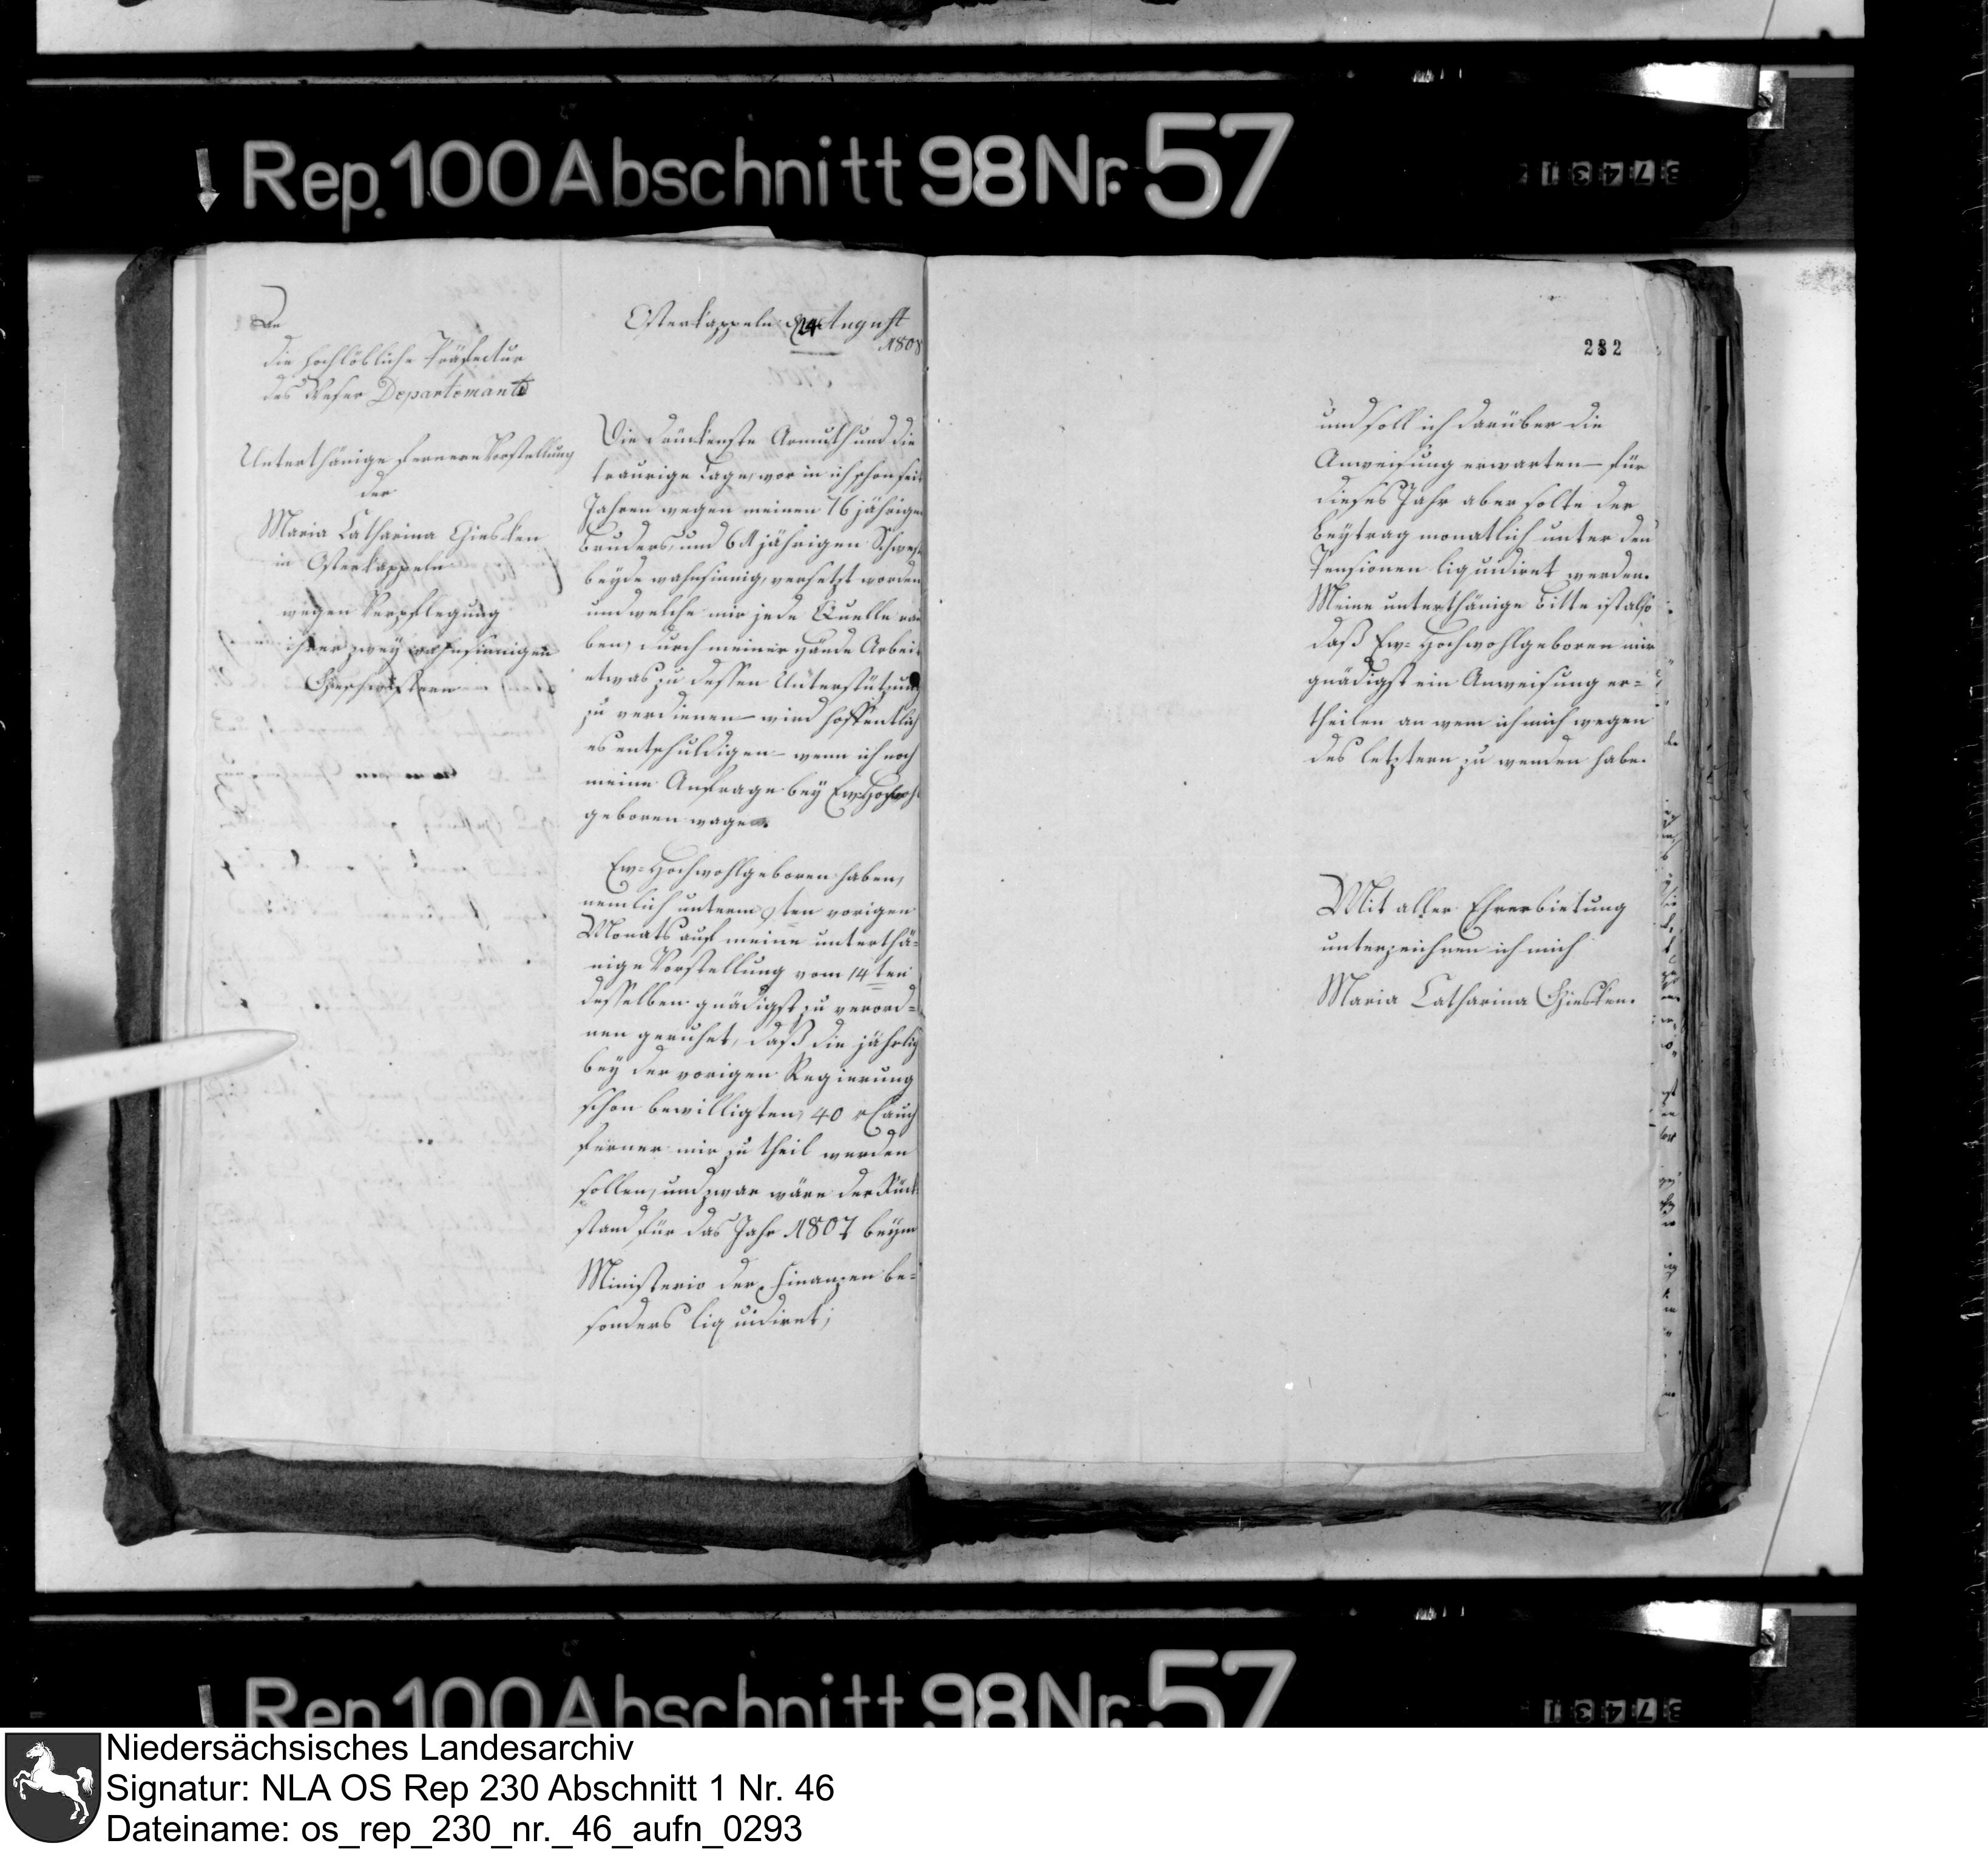 Rep. 100 Abschnitt 98 Nr. 57
An
die hochlöbliche Präfectur
des Weser Departements
Unterthänige fernere Vorstellung
der
Maria Catharina Giesken
in Osterkappeln
wegen Verpflegung
ihrer zwey wahnsinnigen
Geschwistern
Osterkappeln d 24 August
1808
Die drückenste Armuth und die
traurige Lage, wor in ich schon seit
Jahren wegen meinen 76 jährigen
Bruders, und 61 jährigen Schwest
beyde wahnsinnig, versetzt worden
und welche mir jede Quelle rau
ben, durch meiner Hände Arbeit
etwas zu dessen Unterstützung
zu verdienen – wird hoffentlich
es entschuldigen – wenn ich noch
meine Anfrage bey Ew. Hochwohl
geboren wage.
Ew= Hochwohlgeboren haben,
nemlich unterm 9ten vorigen
Monats auf meine unterthä=
nige Vorstellung vom 14ten
desselben gnädigst zu verord=
nen geruhet, daß die jährlich
bey der vorigen Regierung
schon bewilligten, 40 rl auch
ferner mir zu theil werden
sollen, und zwar wäre der Rück
stand für das Jahr 1807 beym
Ministerio der Finanzen be=
sonders liquidiret;
282
und soll ich darüber die
Anweisung erwarten – für
dieses Jahr aber solte der
Beytrag monatlich unter den
Pensionen liquidiret werden.
Meine unterthänige Bitte ist also
daß Ew= Hochwohlgeboren mir
gnädigst ein Anweisung er=
theilen an wem ich mich wegen
des letztern zu wenden habe.
Mit aller Ehrerbietung
unterzeichnen ich mich
Maria Catharina Giesken.
Rep. 100 Abschnitt 98 Nr. 57
Niedersächsisches Landesarchiv
Signatur: NLA OS Rep 230 Abschnitt 1 Nr. 46
Dateiname: os_rep_230_nr._46_aufn_0293